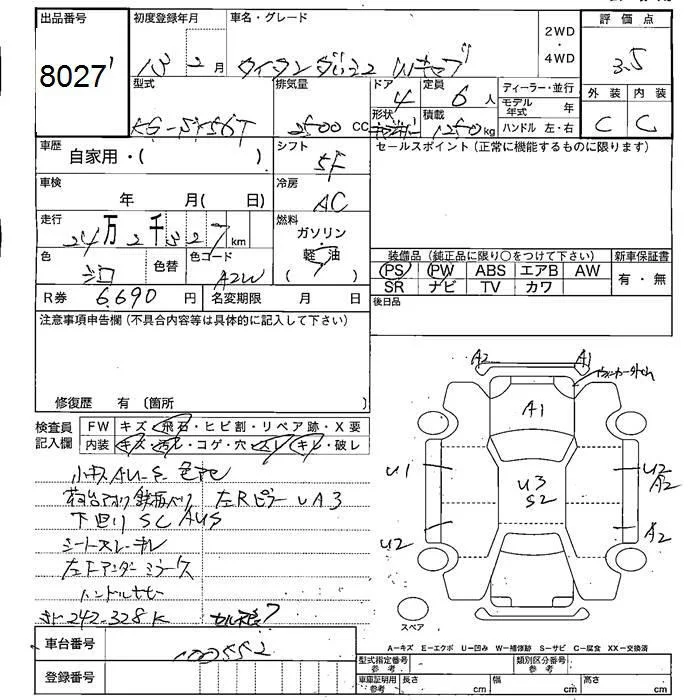 出品番号
8027
初度登録年月
13 2月
車名・グレード
2WD
・
4WD
評価点
3.5
外装 内装
C C
型式
排気量
2500 CC
ドア
4
形状
定員
6人
積載
1250kg
ディーラー・並行
モデル年式 年
ハンドル 左・右
車歴
自家用・( )
シフト
5F
車検
年 月( 日)
冷房
AC
走行
24万2千327km
燃料
ガソリン
・
軽油
( )
色
色替
色コード
A2W
R券 6,690円
名変期限 月 日
セールスポイント (正常に機能するものに限ります)
装備品 (純正品に限り○をつけて下さい)
新車保証書
PS PW ABS エアB AW
SR ナビ TV カワ
有・無
後日品
注意事項申告欄 (不具合内容等は具体的に記入して下さい)
修復歴 有 〔箇所 〕
検査員記入欄
FW キズ・飛石・ヒビ割・リペア跡・X要
内装 キズ・汚レ・コゲ・穴・スレ・キレ・破レ
左Rピラー UA3
下回り SC AUS
シートスレ・キレ
左Fアンダーミラー欠
242,328K
A2 A1
A1
U1
U3
S2
U2
A2
U2
A2
スペア
A−キズ E−エクボ U−凹み W−補修跡 S−サビ C−腐食 XX−交換済
車台番号
100552
登録番号
型式指定番号
参考
類別区分番号
参考
車庫証明用
参考
長さ cm
幅 cm
高さ cm